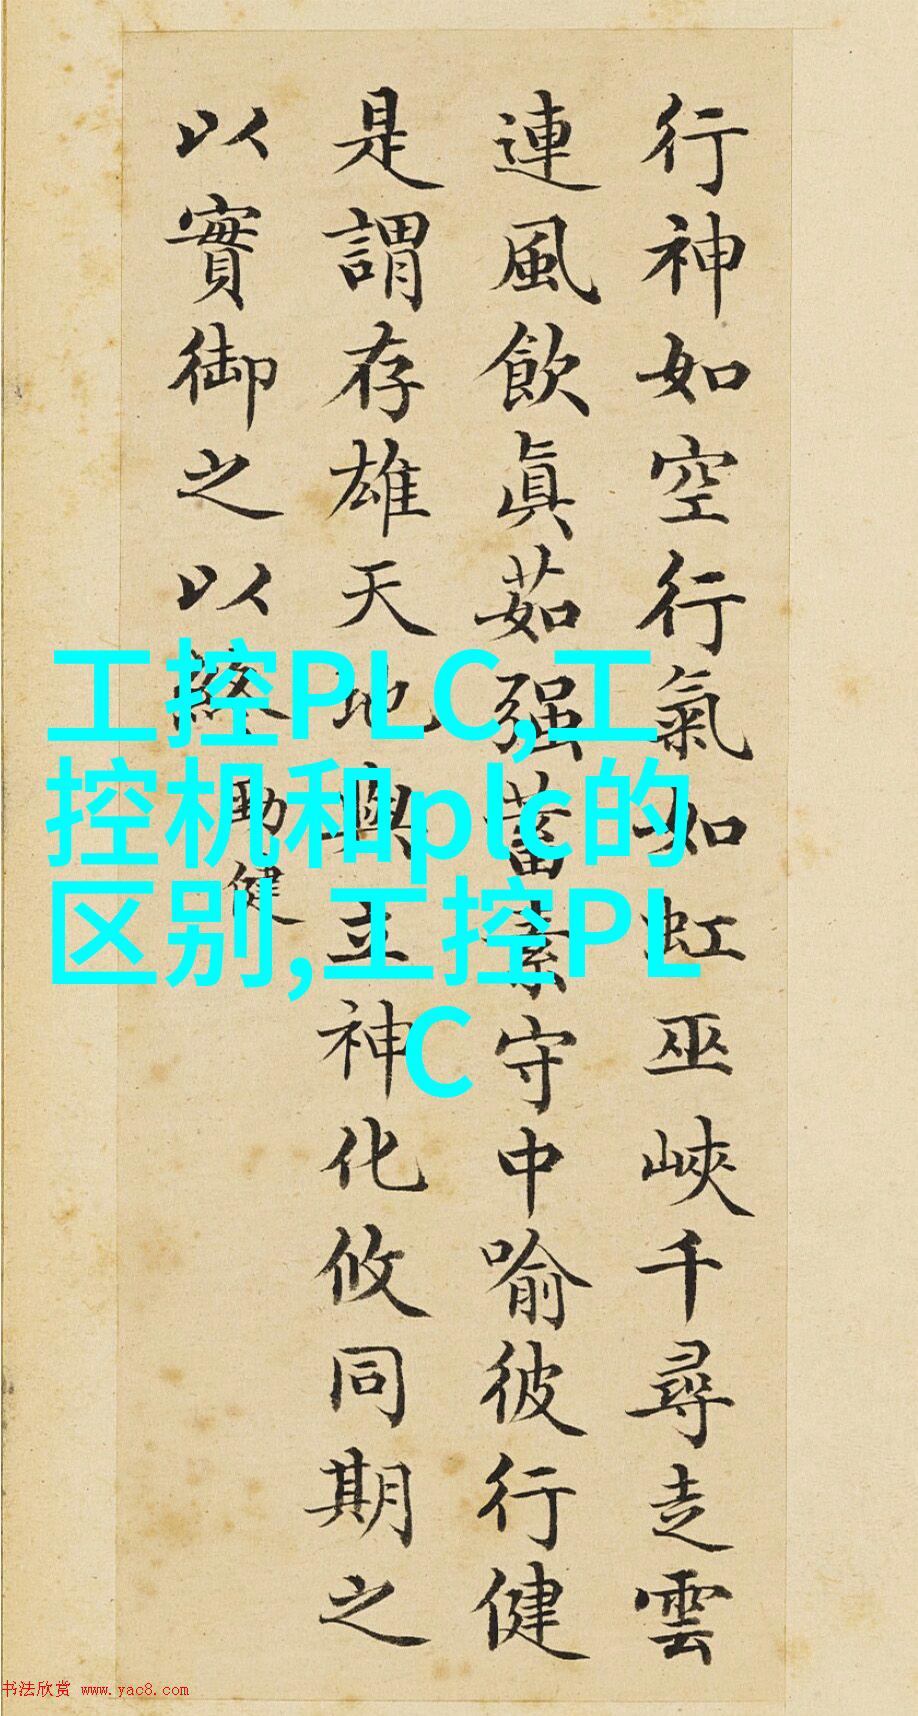 行神如空行氣如虹巫峽千尋走雲
連風飲眞茹强蓄素守中喻彼行健
是謂存雄天地與立神化攸同期之
以實御之以終
勁健
工控PLC,工
控机和plc的
区别,工控PL
C
书法欣赏 www.yac8.com